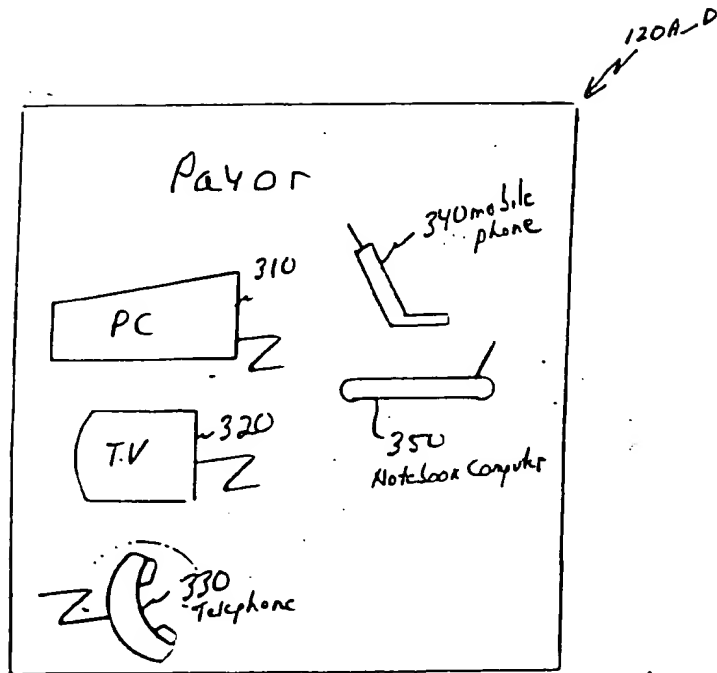 120A_D
Payor
340 mobile
phone
310
PC
320
T.V
350
Notebook Computer
330
Telephone